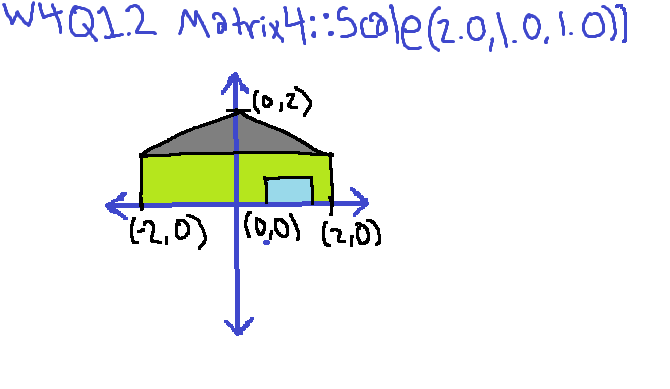 W4Q1.2 Matrix4::Scale(2.0,1.0,1.0)]
(0,2)
(-2,0) (0,0) (2,0)